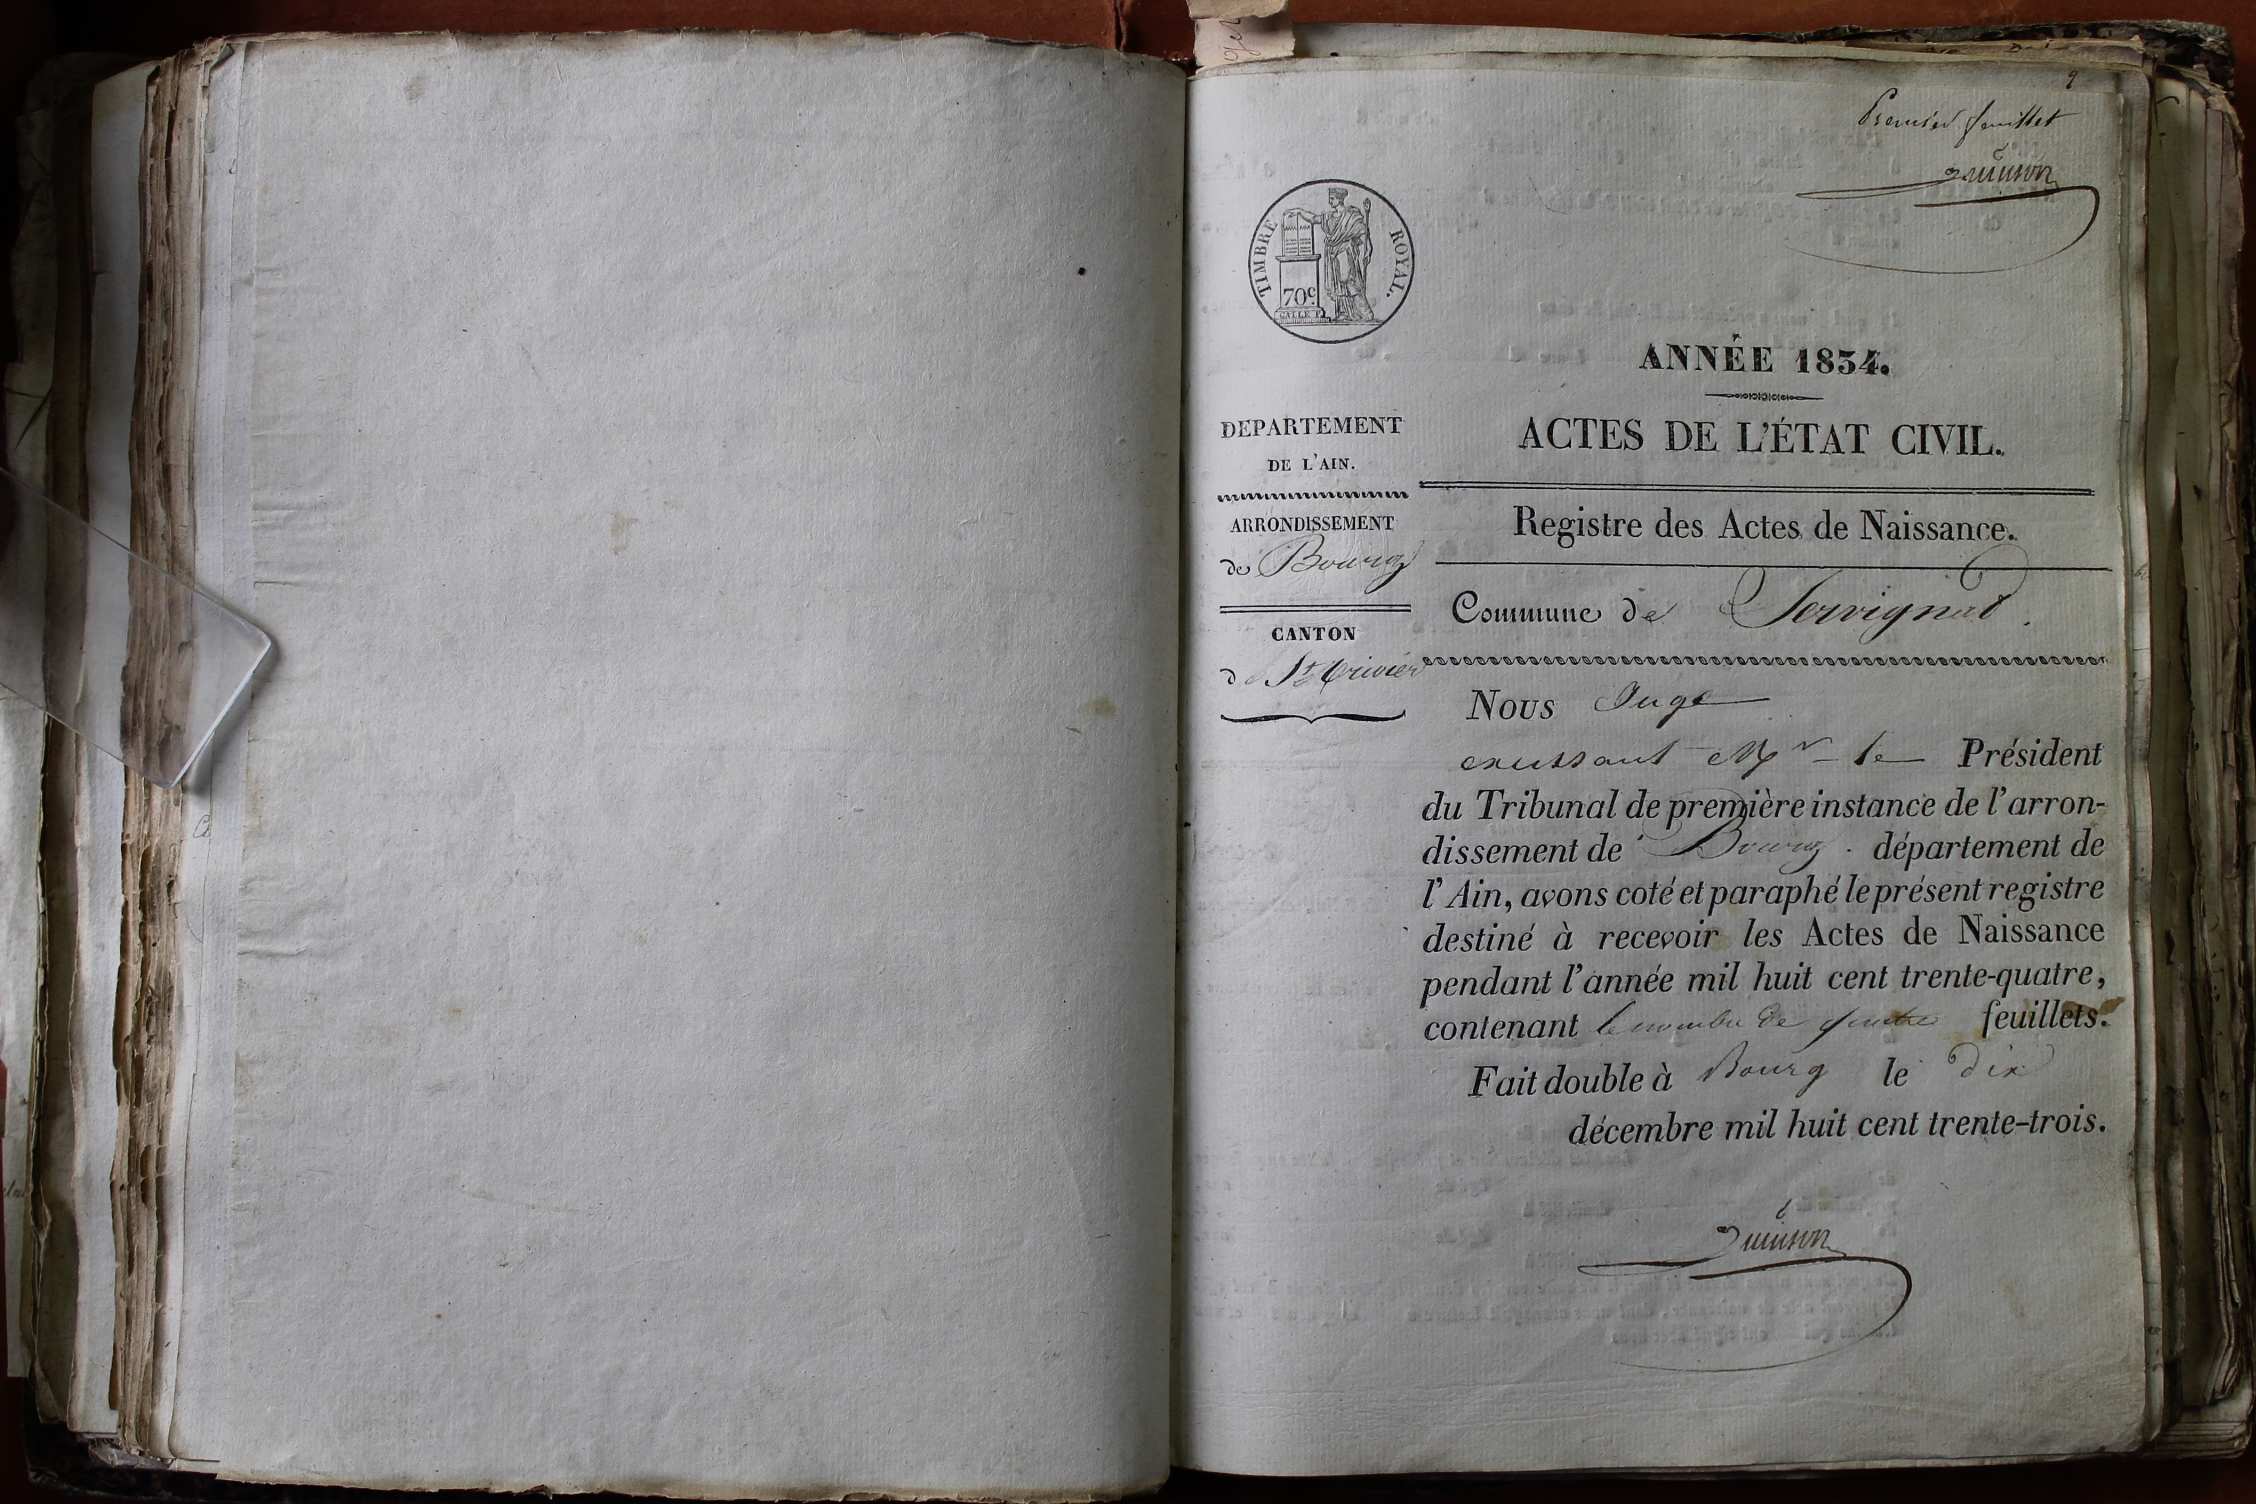 9
Premier feuillet
Quinson
TIMBRE ROYAL.
70c
GALLE F.
ANNÉE 1834.
ACTES DE L'ÉTAT CIVIL.
DEPARTEMENT
DE L'AIN.
ARRONDISSEMENT
de Bourg
CANTON
de St Trivier
Registre des Actes de Naissance.
Commune de Servignat.
Nous Juge
Président
du Tribunal de première instance de l'arron-
dissement de Bourg. département de
l'Ain, avons coté et paraphé le présent registre
destiné à recevoir les Actes de Naissance
pendant l'année mil huit cent trente-quatre,
contenant le nombre de feuillets.
Fait double à Bourg le dix
décembre mil huit cent trente-trois.
Quinson